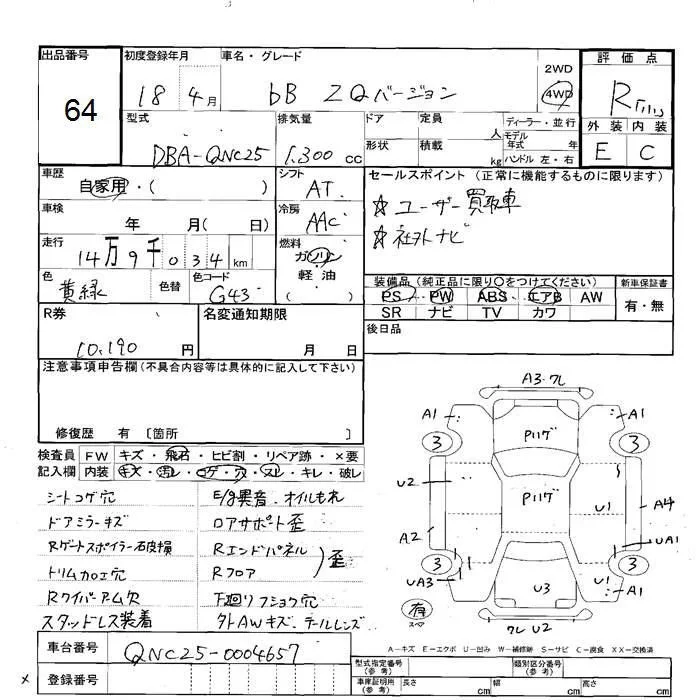 出品番号 初度登録年月 車名・グレード 2WD 評価点
64 18 4月 bB ZQバージョン 4WD R
型式 排気量 ドア 定員 人 ディーラー・並行 外装 内装
DBA-QNC25 1,300 cc 形状 積載 kg モデル年式 年 ハンドル 左・右 E C
車歴 自家用・( ) シフト AT セールスポイント (正常に機能するものに限ります)
車検 年 月( 日) 冷房 AAC ☆ユーザー買取車
走行 14万9千034km 燃料 ガソリン ☆社外ナビ
色 黄緑 色替 色コード G43 軽油 ( )
装備品(純正品に限り○をつけてください) 新車保証書
PS PW ABS エアB AW 有・無
SR ナビ TV カワ
R券 名変通知期限 後日品
10,190円 月 日
注意事項申告欄(不具合内容等は具体的に記入して下さい)
修復歴 有 〔箇所 〕
検査員 FW キズ・飛石・ヒビ割・リペア跡・×要
記入欄 内装 キズ・汚レ・コゲ・穴・スレ・キレ・破レ
シートコゲ穴 E/g異音・オイルもれ
ドアミラーキズ ロアサポート歪
Rゲートスポイラー石皮損 Rエンドパネル 歪
トリムカロエ穴 Rフロア
Rワイパーアム欠 下廻りフショク穴
スタッドレス装着 外AWキズ テールレンズ
A3・ワレ
A1 A1
3 P117" 3
U2 P117" U1 A4
A2 UA1
3 3
UA3 U3 U1
有 スペア ワレ U2
A-キズ E-エクボ U-凹み W-補修跡 S-サビ C-腐食 XX-交換済
車台番号 QNC25-0004657
× 登録番号
型式指定番号(参考) 類別区分番号(参考)
車庫証明用(参考) 長さ cm 幅 cm 高さ cm